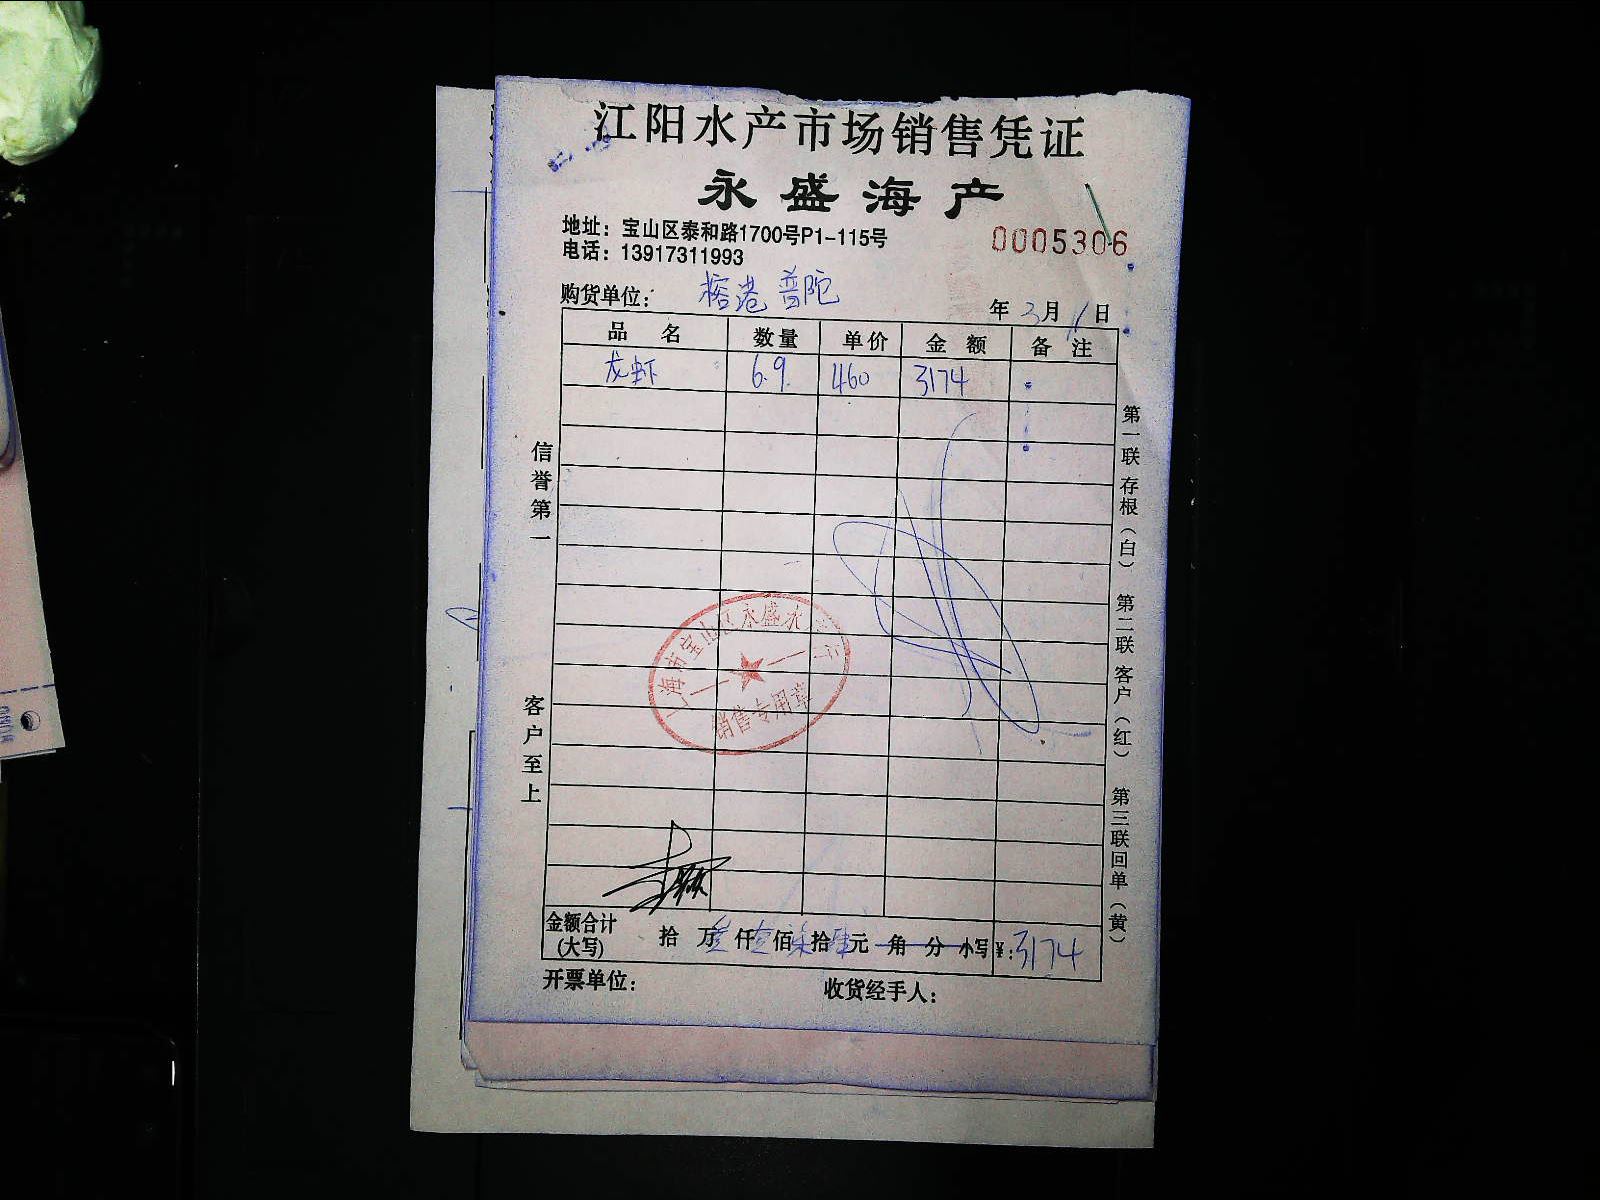 江阳水产市场销售凭证
永盛海产
地址：宝山区泰和路1700号P1-115号
电话：13917311993
0005306
购货单位： 榕港普陀
年 3月 1日
品 名 数量 单价 金 额 备 注
龙虾 6.9 460 3174
信誉第一
客户至上
第一联 存根（白） 第二联 客户（红） 第三联 回单（黄）
上海市宝山区永盛水产行
销售专用章
金额合计（大写） 拾 万叁仟壹佰柒拾肆元 角 分 小写￥：3174
开票单位： 收货经手人：